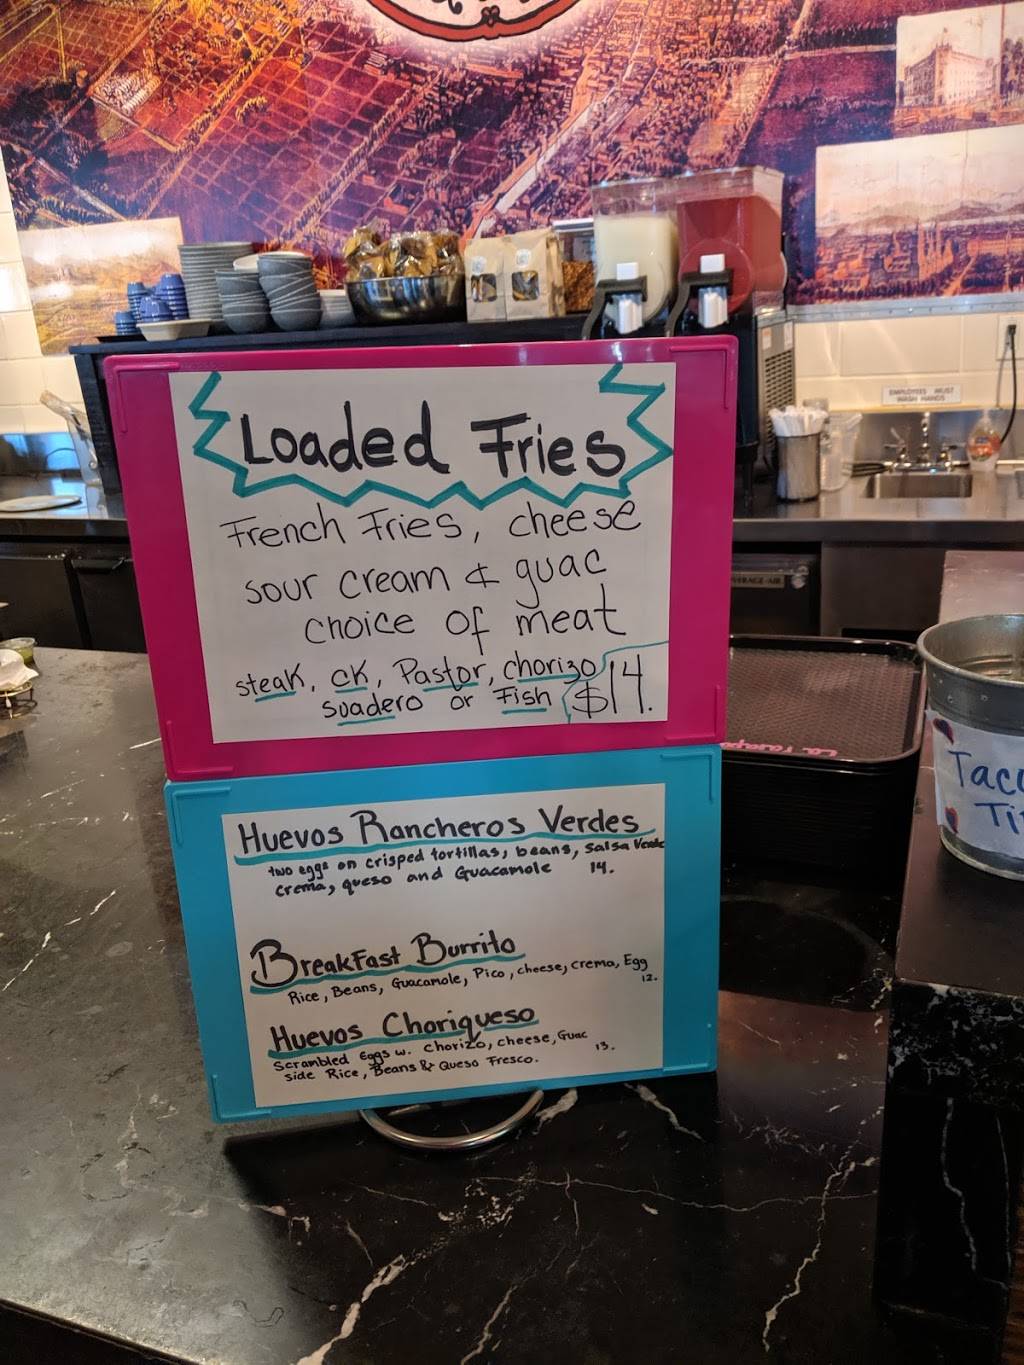 Loaded Fries
French Fries, cheese
sour cream & guac
choice of meat
steak, ck, Pastor, chorizo
suadero or Fish $14.
Huevos Rancheros Verdes
two eggs on crisped tortillas, beans, Salsa Verde
crema, queso and Guacamole 14.
BreakFast Burrito
Rice, Beans, Guacamole, Pico, cheese, crema, Egg
12.
Huevos Choriqueso
Scrambled Eggs w. chorizo, cheese, Guac
side Rice, Beans & Queso Fresco. 13.
EMPLOYEES MUST
WASH HANDS